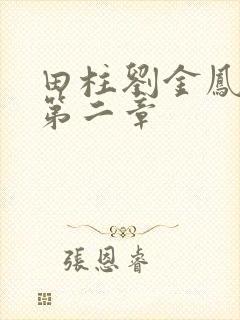 田柱劉金鳳
第二章
張恩睿